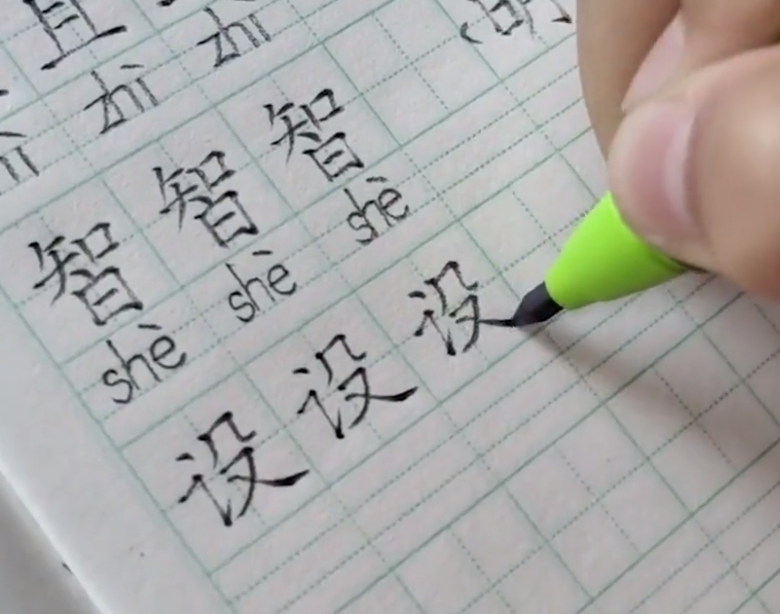 zhì zhì
智 智 智
shè shè shè
设 设 设